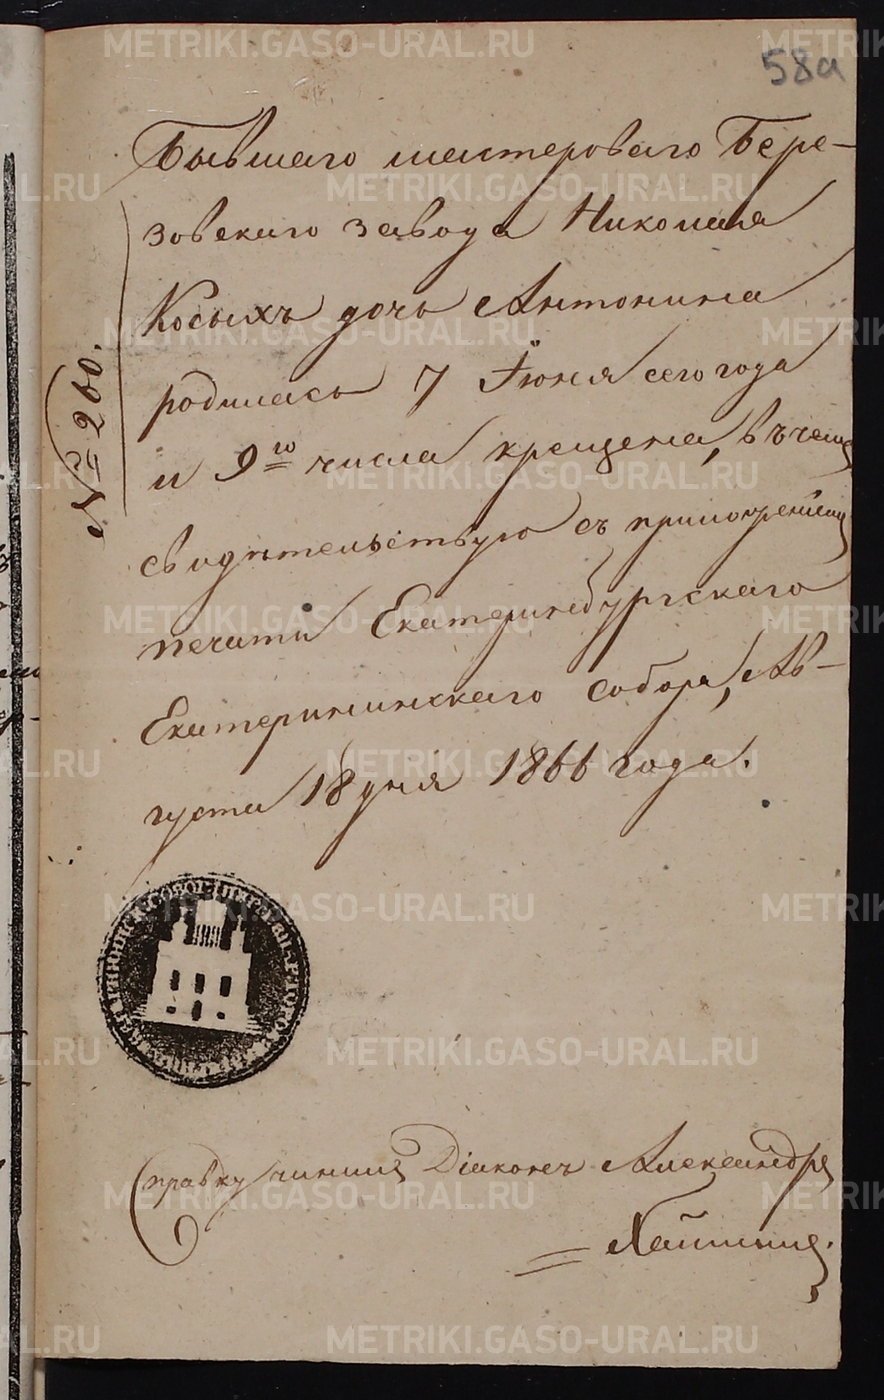 58а
Бывшаго мастероваго Бере-
зовскаго завода Николая
Косыхъ дочь Антонина
родилась 7 Іюня сего года
и 9го числа крещена, въ чемъ
свидѣтельствую съ приложеніемъ
печати Екатеринбургскаго
Екатерининскаго собора, Ав-
густа 18 дня 1866 года.
№ 260.
Справку чинилъ Діаконъ Александръ
METRIKI.GASO-URAL.RU